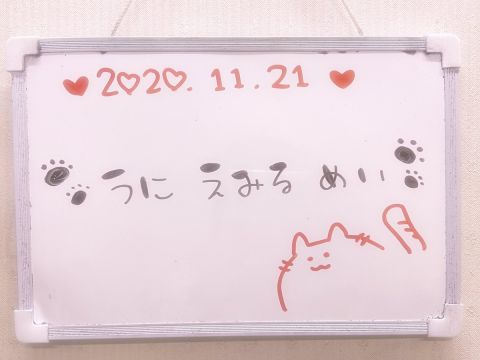 2020.11.21
うに えみる めい